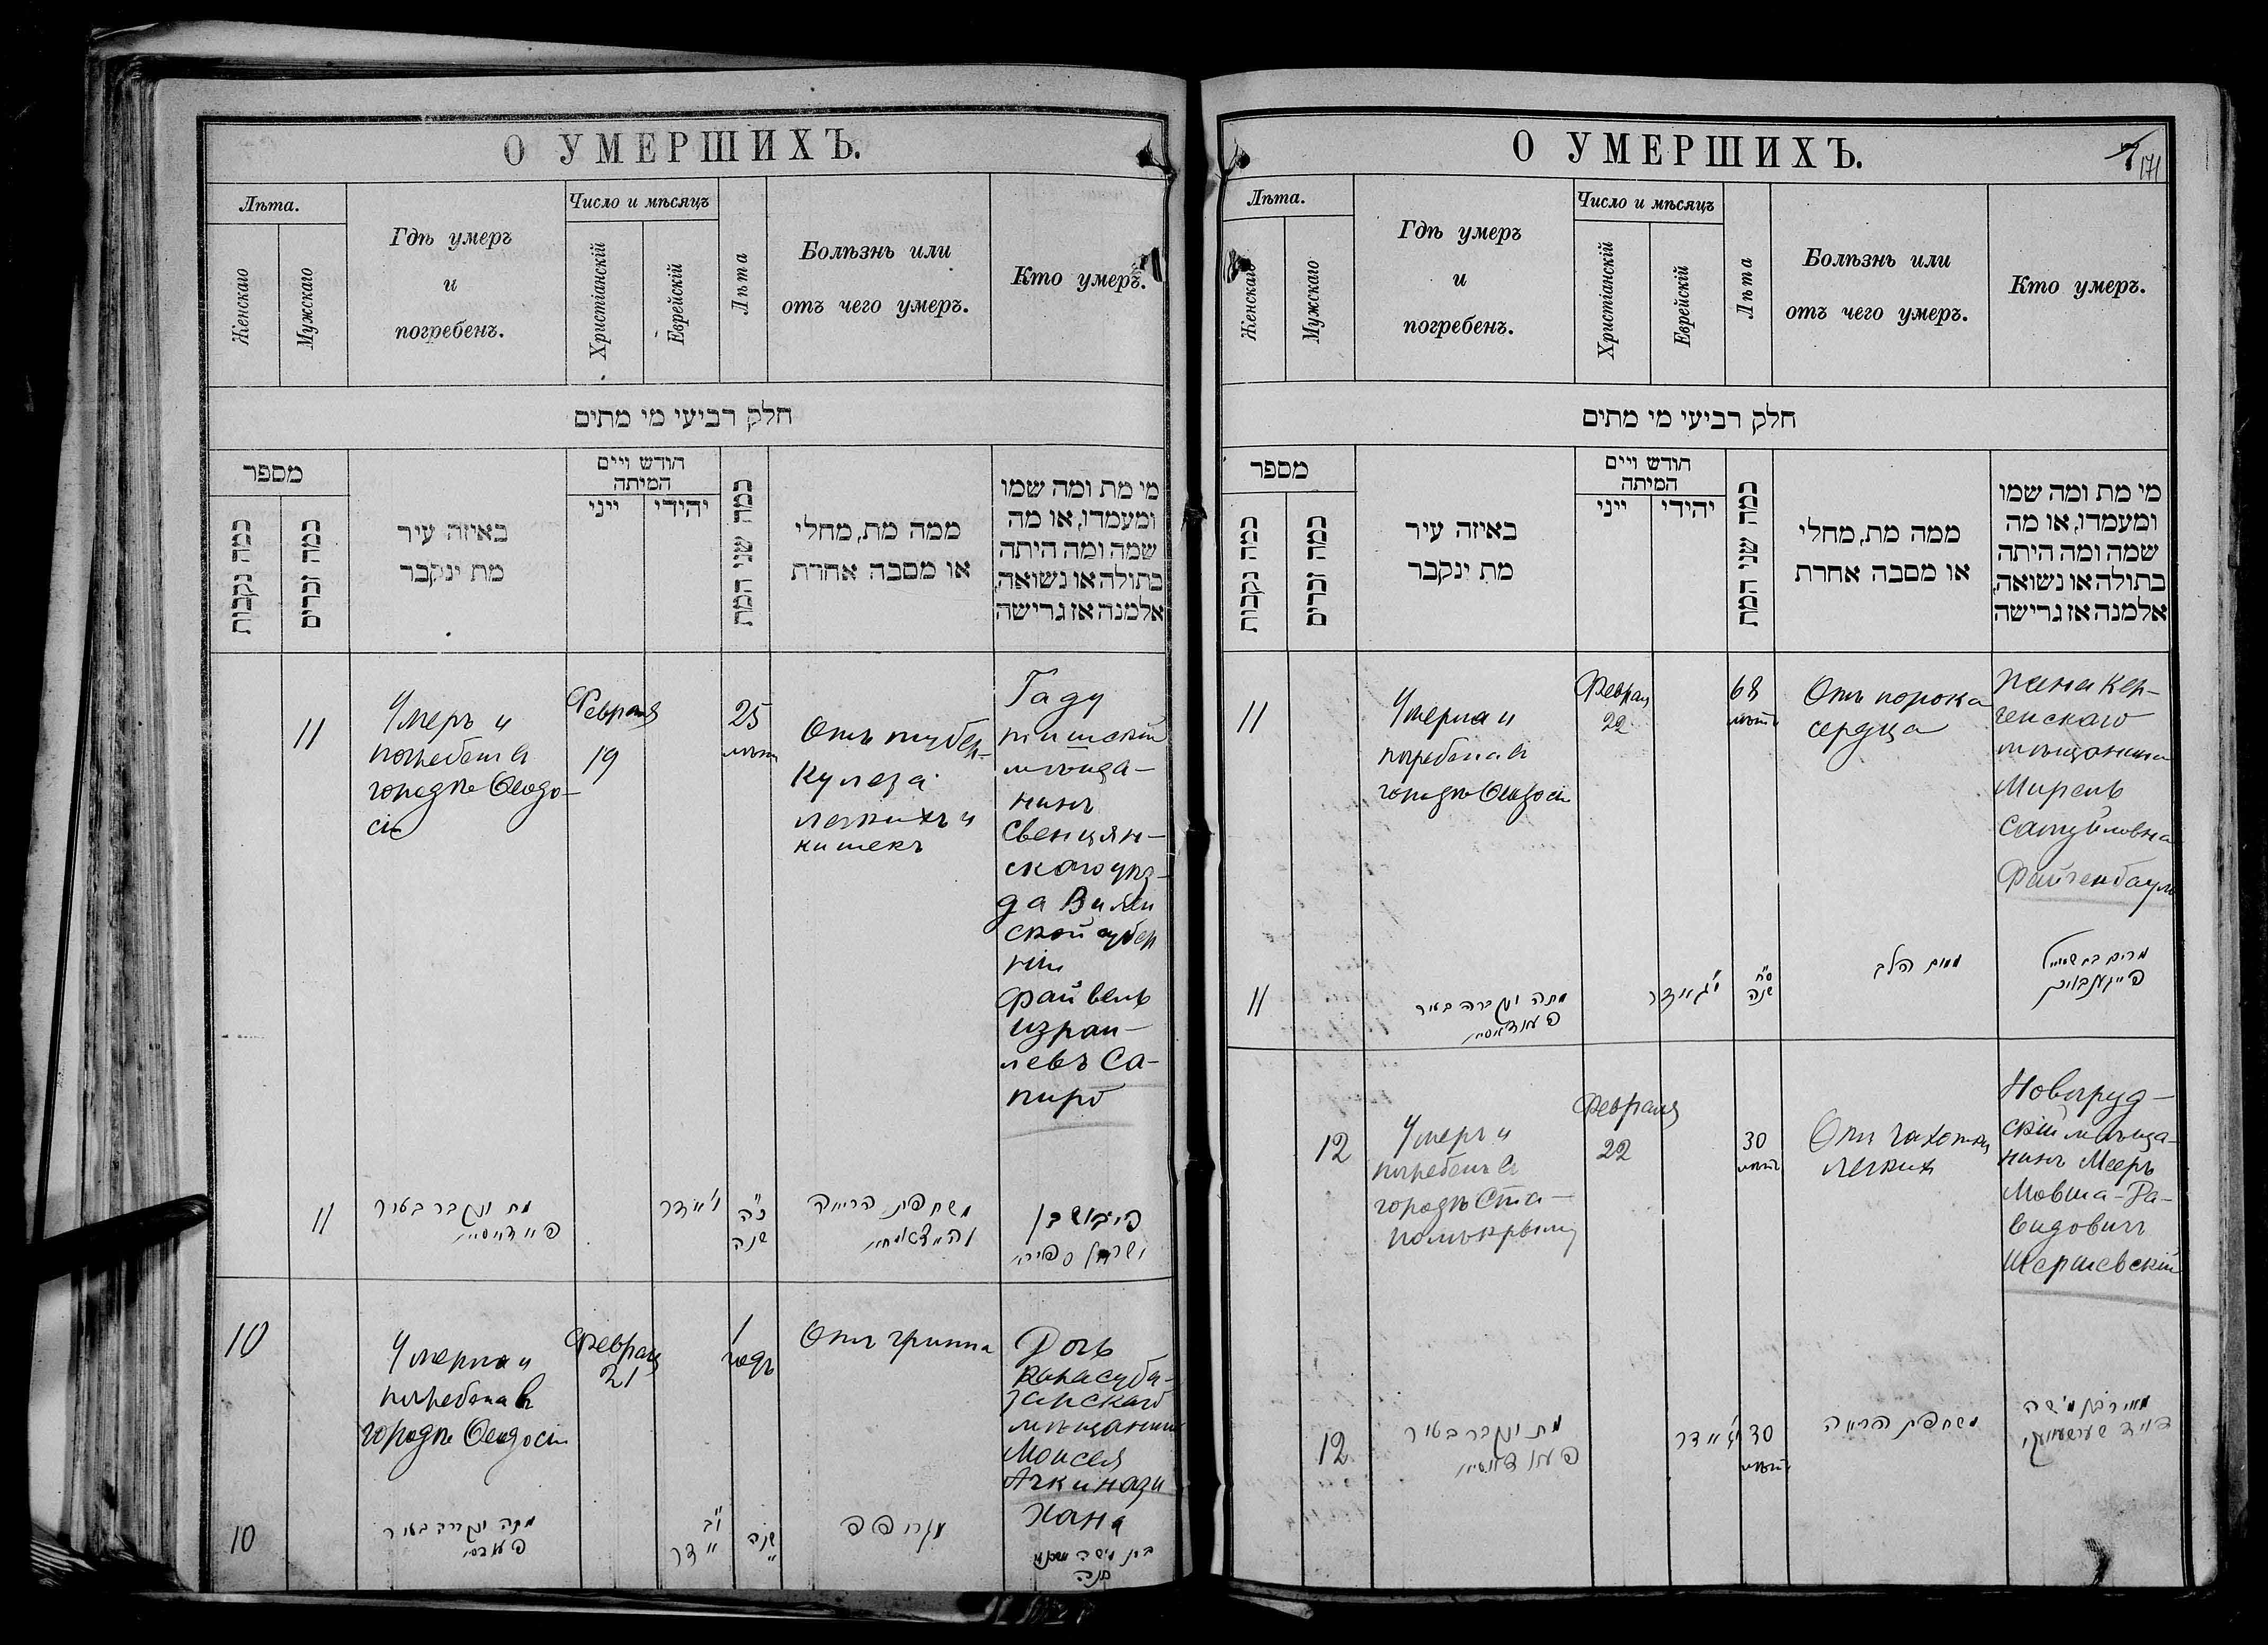 О УМЕРШИХЪ.
Лѣта.
Женскаго
Мужскаго
Гдѣ умеръ
и
погребенъ.
Число и мѣсяцъ
Христіанскій
Еврейскій
Лѣта
Болѣзнь или
отъ чего умеръ.
Кто умеръ.
חלק רביעי מי מתים
מספר
כמה נקבות
כמה זכרים
באיזה עיר
מת ינקבר
חודש ויים
המיתה
ייני
יהודי
כמה שני המת
ממה מת, מחלי
או מסבה אחרת
מי מת ומה שמו
ומעמדו, או מה
שמה ומה היתה
בתולה או נשואה,
אלמנה אז גרישה
11
Умеръ и
погребенъ въ
городѣ Ѳеодо-
сіи
Февраля
19
25
лѣтъ
Отъ тубер-
кулеза
легкихъ и
кишекъ
Гаду
тишскій
мѣща-
нинъ
Свенцян-
скаго уѣз-
да Вилен
ской губер
ніи
Файвель
Израи-
левъ Са-
пиро
11
מת ונקבר בעיר
כ"ה
שנה
משחפת הריאה
פייבוש בן
ישראל ספירא
10
Умерла и
погребена въ
городѣ Ѳеодосіи
Февраля
21
1
годъ
Отъ гриппа
Дочь
Карасуба-
зарскаго
мѣщанина
Моисея
Ачкинази
Хана
10
מתה ונקברה בעיר
שנה
О УМЕРШИХЪ.
171
Лѣта.
Женскаго
Мужскаго
Гдѣ умеръ
и
погребенъ.
Число и мѣсяцъ
Христіанскій
Еврейскій
Лѣта
Болѣзнь или
отъ чего умеръ.
Кто умеръ.
חלק רביעי מי מתים
מספר
כמה נקבות
כמה זכרים
באיזה עיר
מת ינקבר
חודש ויים
המיתה
ייני
יהודי
כמה שני המת
ממה מת, מחלי
או מסבה אחרת
מי מת ומה שמו
ומעמדו, או מה
שמה ומה היתה
בתולה או נשואה,
אלמנה אז גרישה
11
Умерла и
погребена въ
городѣ Ѳеодосіи
Февраля
22
68
лѣтъ
Отъ порока
сердца
Жена Кер-
ченскаго
мѣщанина
Мирель
Самуйловна
Файгенбаумъ
11
מתה ונקברה בעיר
ס"ח
שנה
ממום הלב
מרים בת שמואל
פייגענבוים
12
Умеръ и
погребенъ въ
городѣ Ста-
ромъ Крыму
Февраля
22
30
лѣтъ
Отъ чахотки
легкихъ
Новогруд-
скій мѣща-
нинъ Мееръ
Мовша-Да-
видовичъ
Шершевскій
12
מת ונקבר בעיר
30
лѣтъ
משחפת הריאה
מאיר בן משה
דויד שערשעווסקי